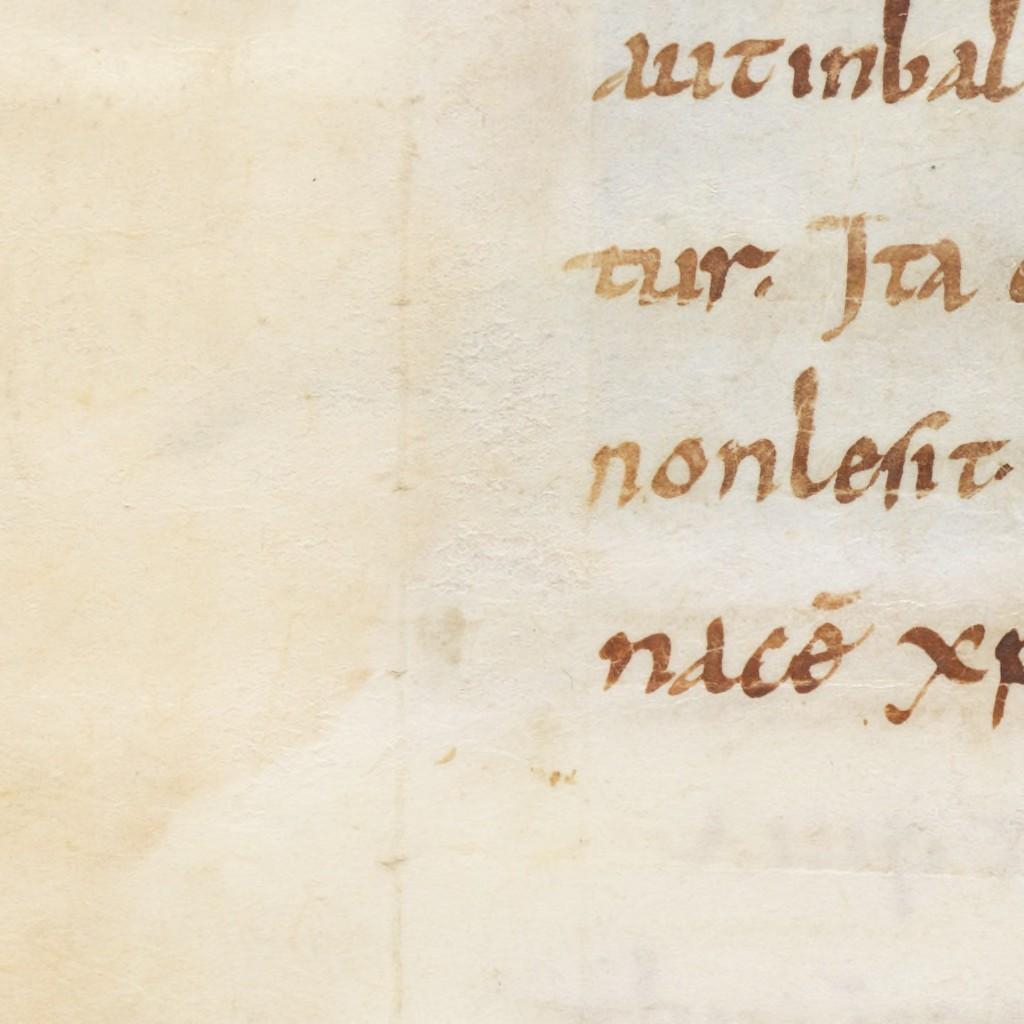 aut in bal
tur. Ita
non lesit.
nacē xp